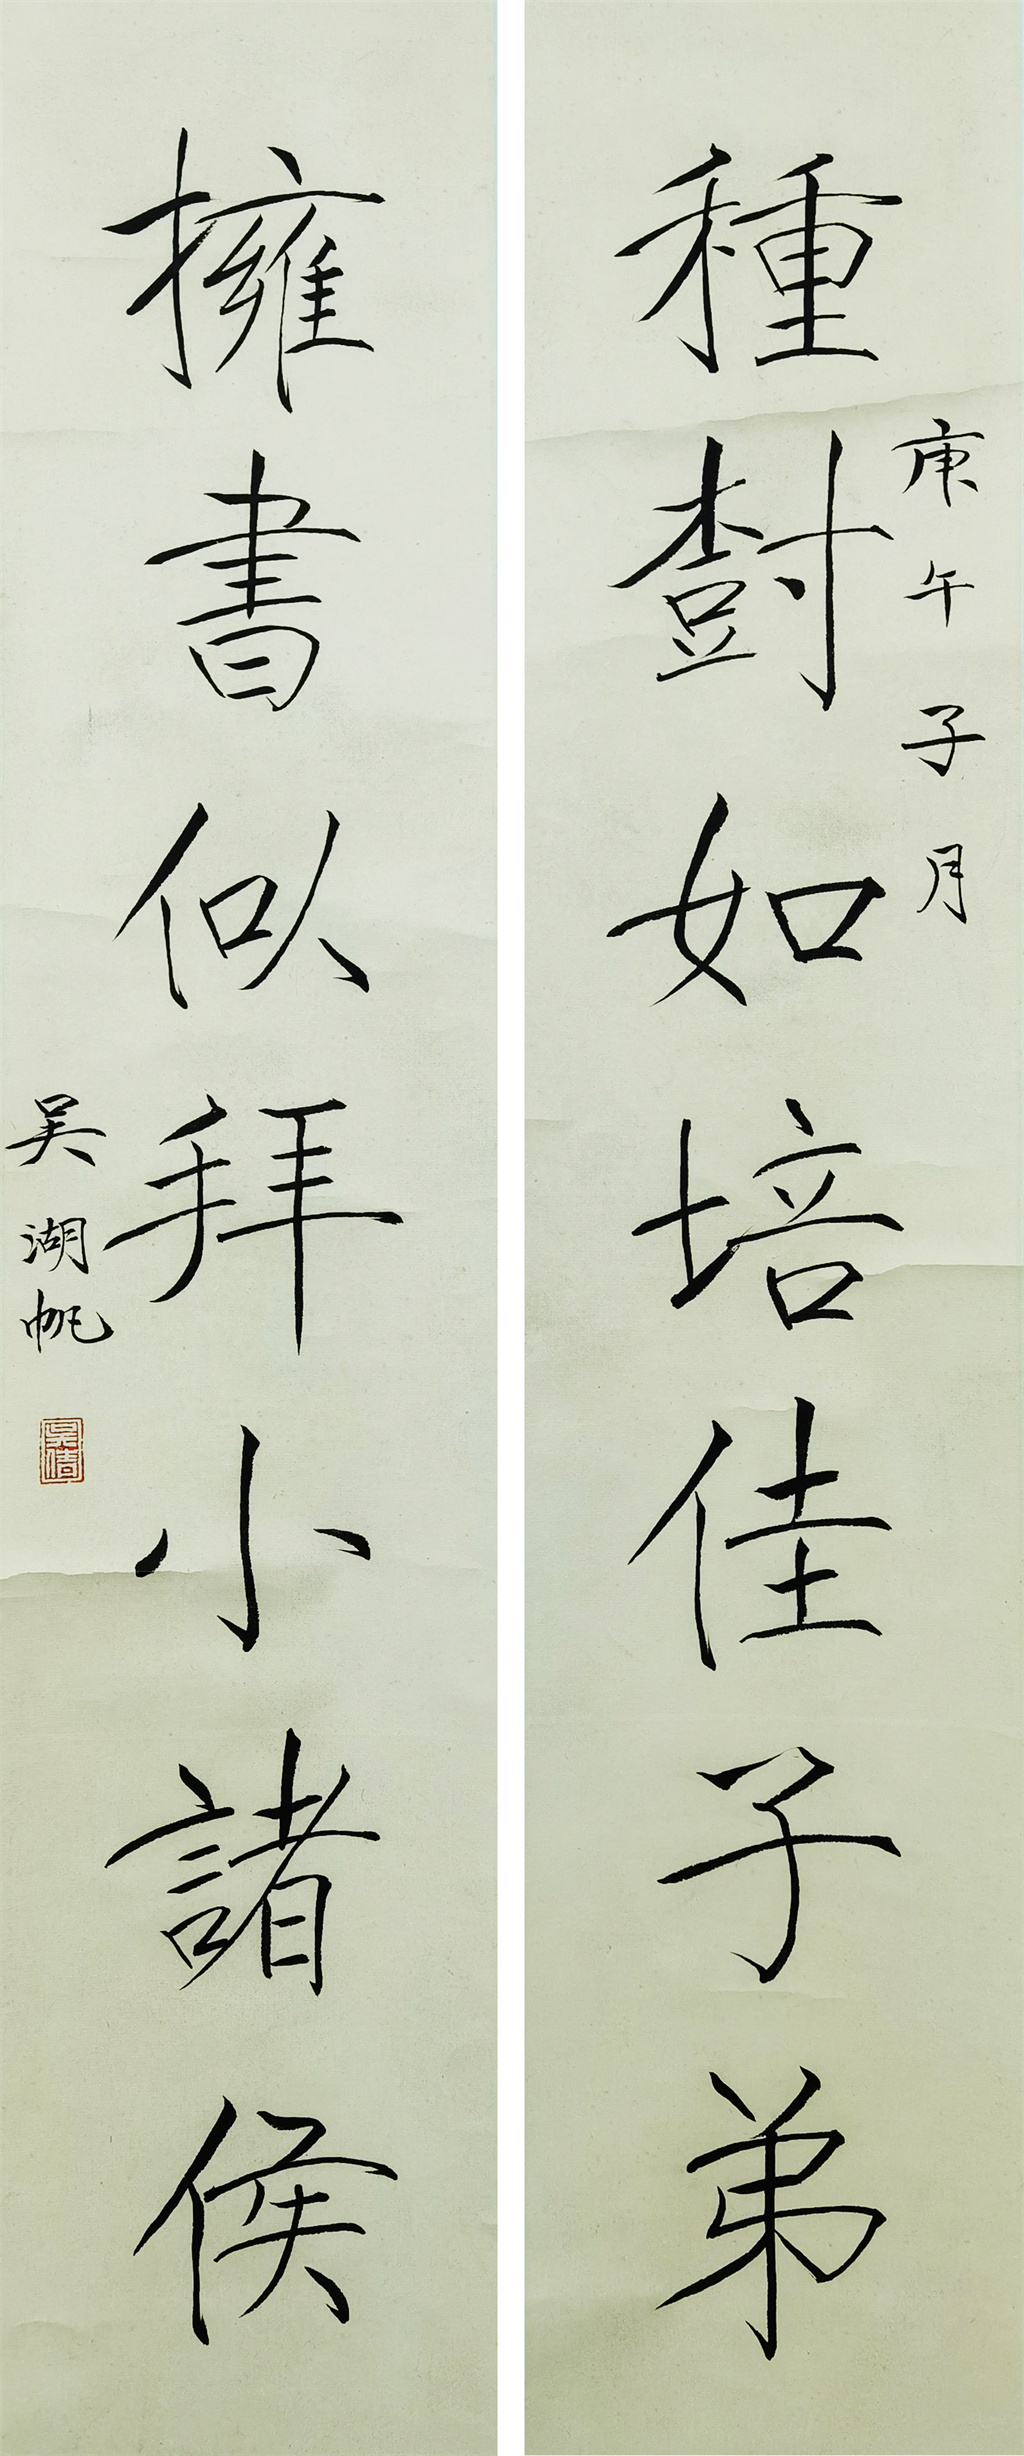 庚午子月
種樹如培佳子弟
擁書似拜小諸侯
吴湖帆
吴倩